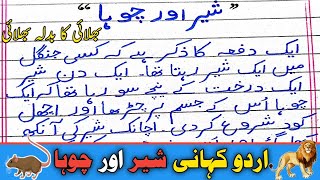 ”شیر اور چوہا“
بھلائی کا بدلہ بھلائی
ایک دفعہ کا ذکر ہے کہ کسی جنگل
میں ایک شیر رہتا تھا۔ ایک دن شیر
ایک درخت کے نیچے سو رہا تھا کہ ایک
چوہا اس کے جسم پر چڑھا اور اچھل
کود شروع کر دی۔ اچانک شیر کی آنکھ
اردو کہانی شیر اور چوہا